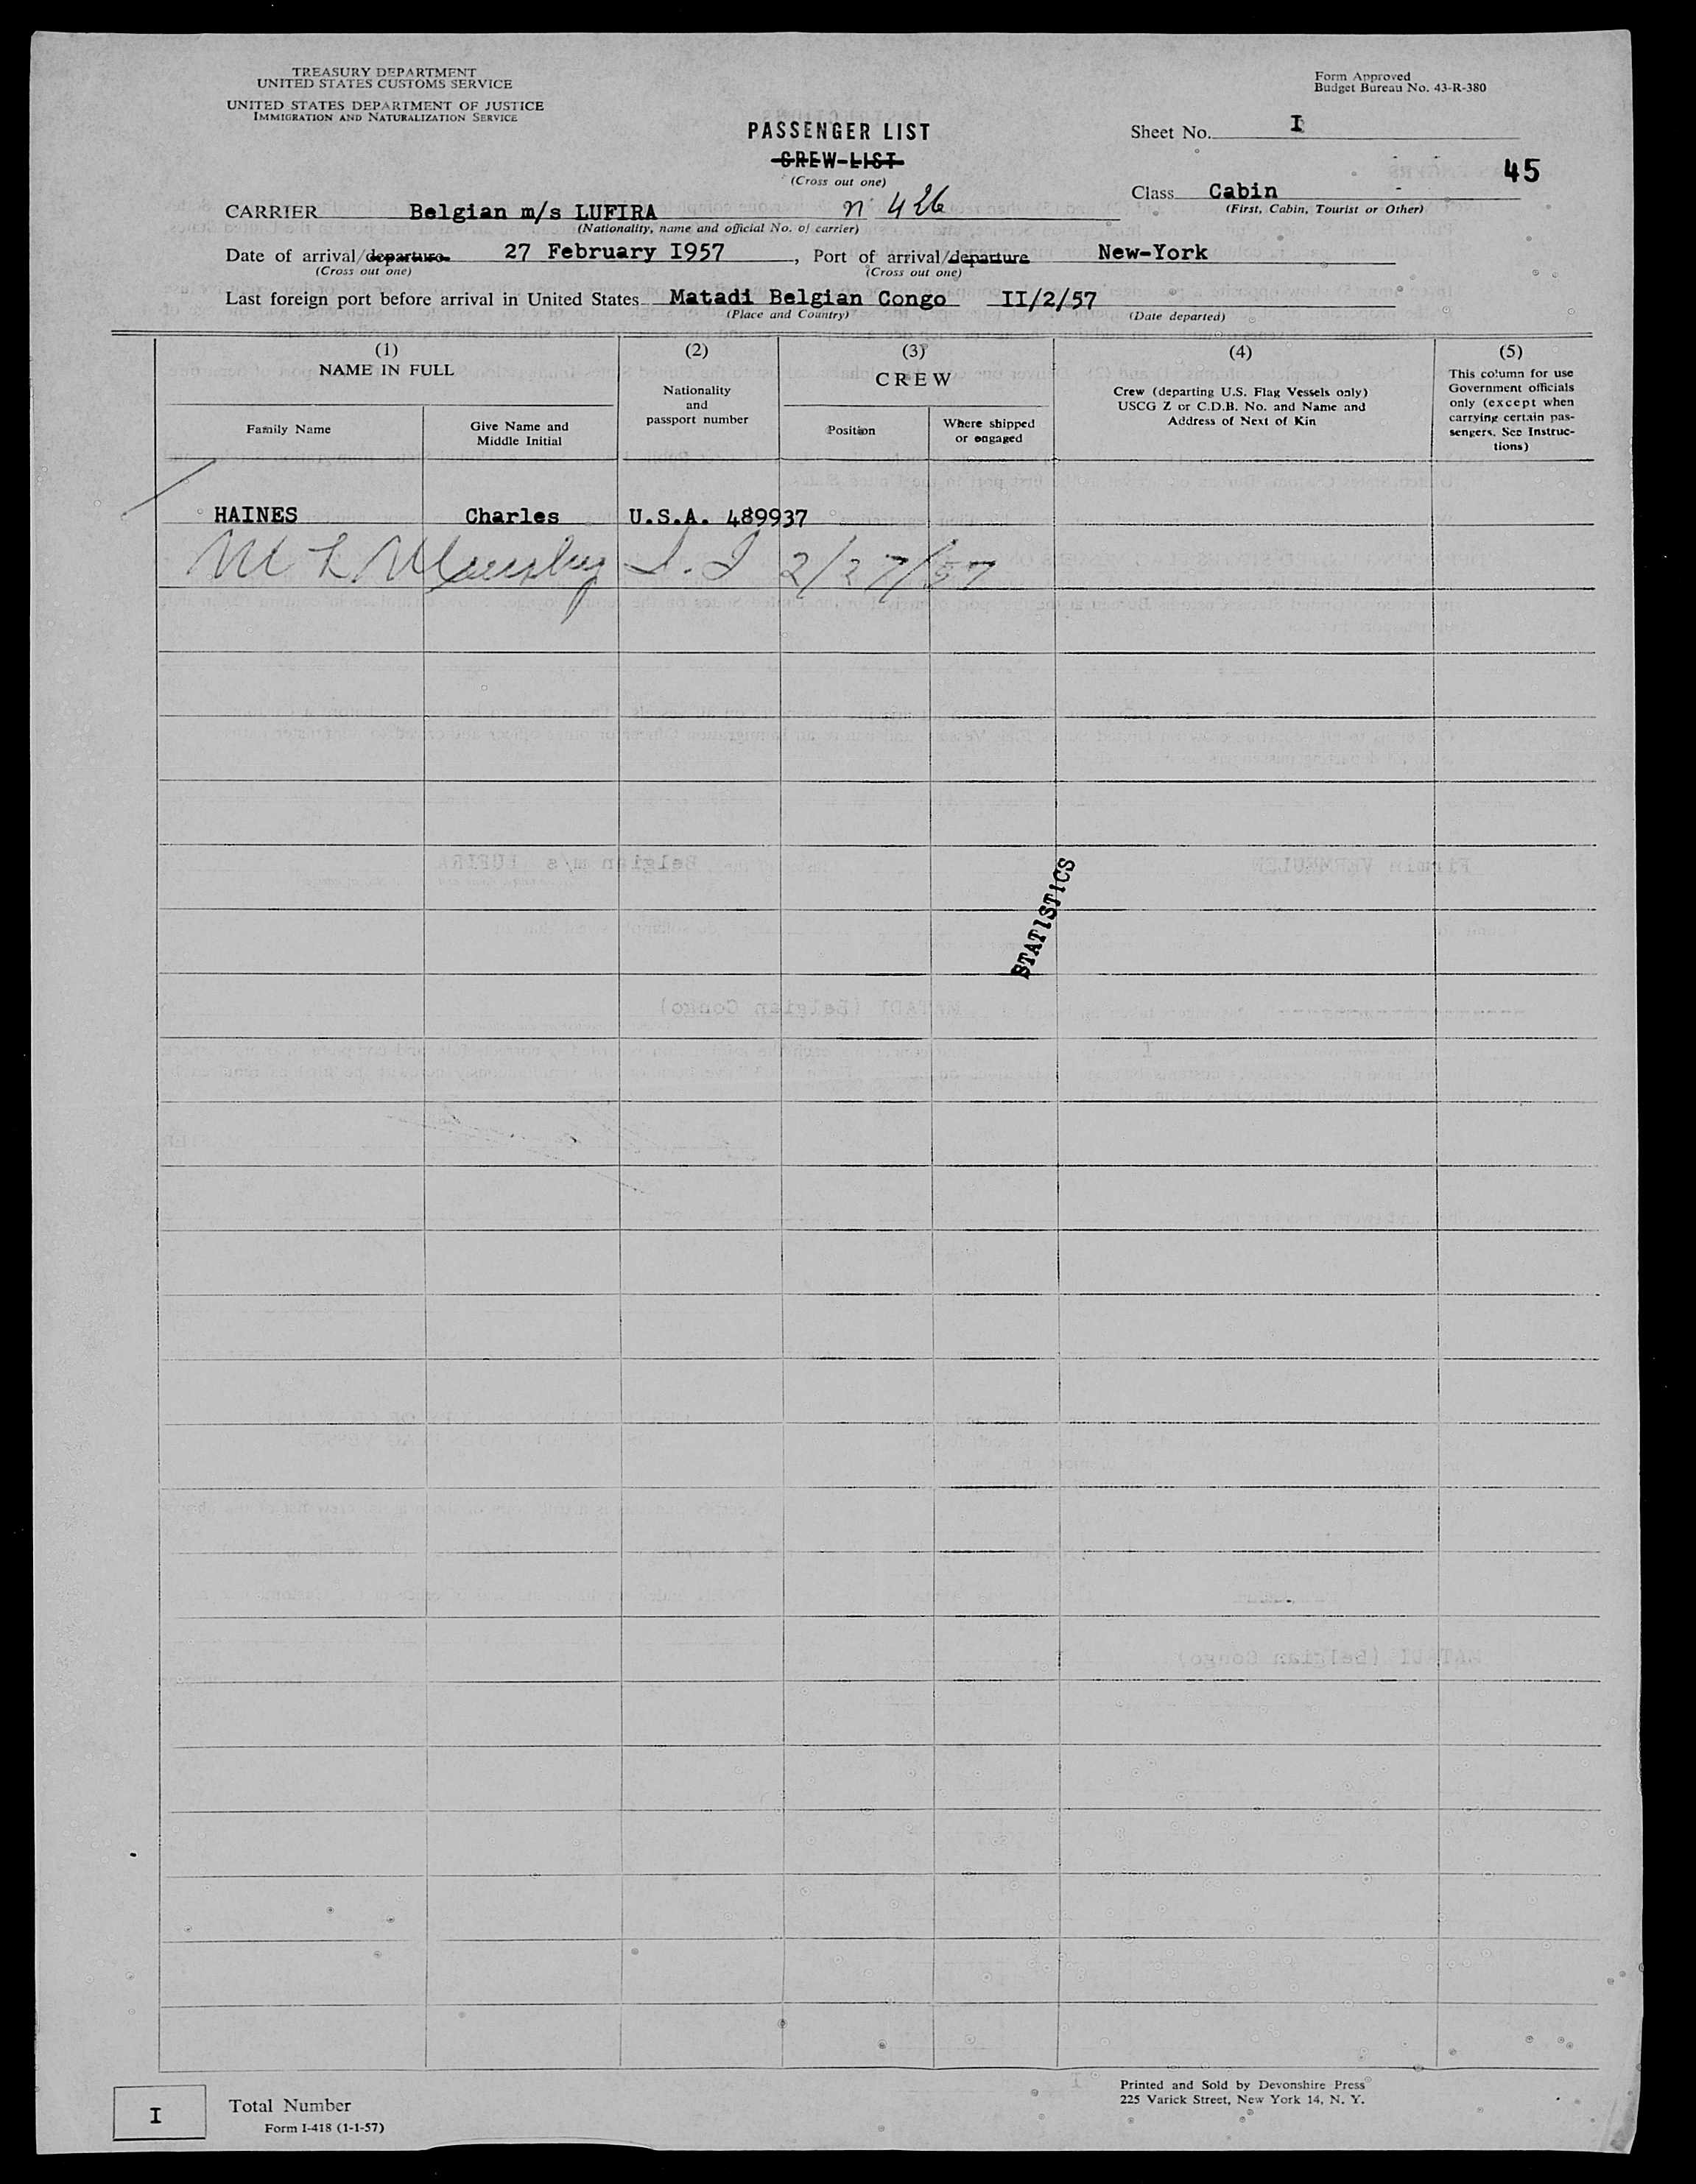 TREASURY DEPARTMENT
UNITED STATES CUSTOMS SERVICE
UNITED STATES DEPARTMENT OF JUSTICE
IMMIGRATION AND NATURALIZATION SERVICE
Form Approved
Budget Bureau No. 43-R-380
PASSENGER LIST
CREW LIST
(Cross out one)
Sheet No. I
45
Class Cabin
(First, Cabin, Tourist or Other)
CARRIER Belgian m/s LUFIRA n° 426
(Nationality, name and official No. of carrier)
Date of arrival/departure 27 February I957, Port of arrival/departure New-York
(Cross out one) (Cross out one)
Last foreign port before arrival in United States Matadi Belgian Congo II/2/57
(Place and Country) (Date departed)
(1) (2) (3) (4) (5)
NAME IN FULL
Family Name
Give Name and
Middle Initial
Nationality
and
passport number
CREW
Position
Where shipped
or engaged
Crew (departing U.S. Flag Vessels only)
USCG Z or C.D.B. No. and Name and
Address of Next of Kin
This column for use
Government officials
only (except when
carrying certain pas-
sengers. See Instruc-
tions)
HAINES Charles U.S.A. 489937
M L 2/27/57
STATISTICS
I
Total Number
Form I-418 (1-1-57)
Printed and Sold by Devonshire Press
225 Varick Street, New York 14, N. Y.